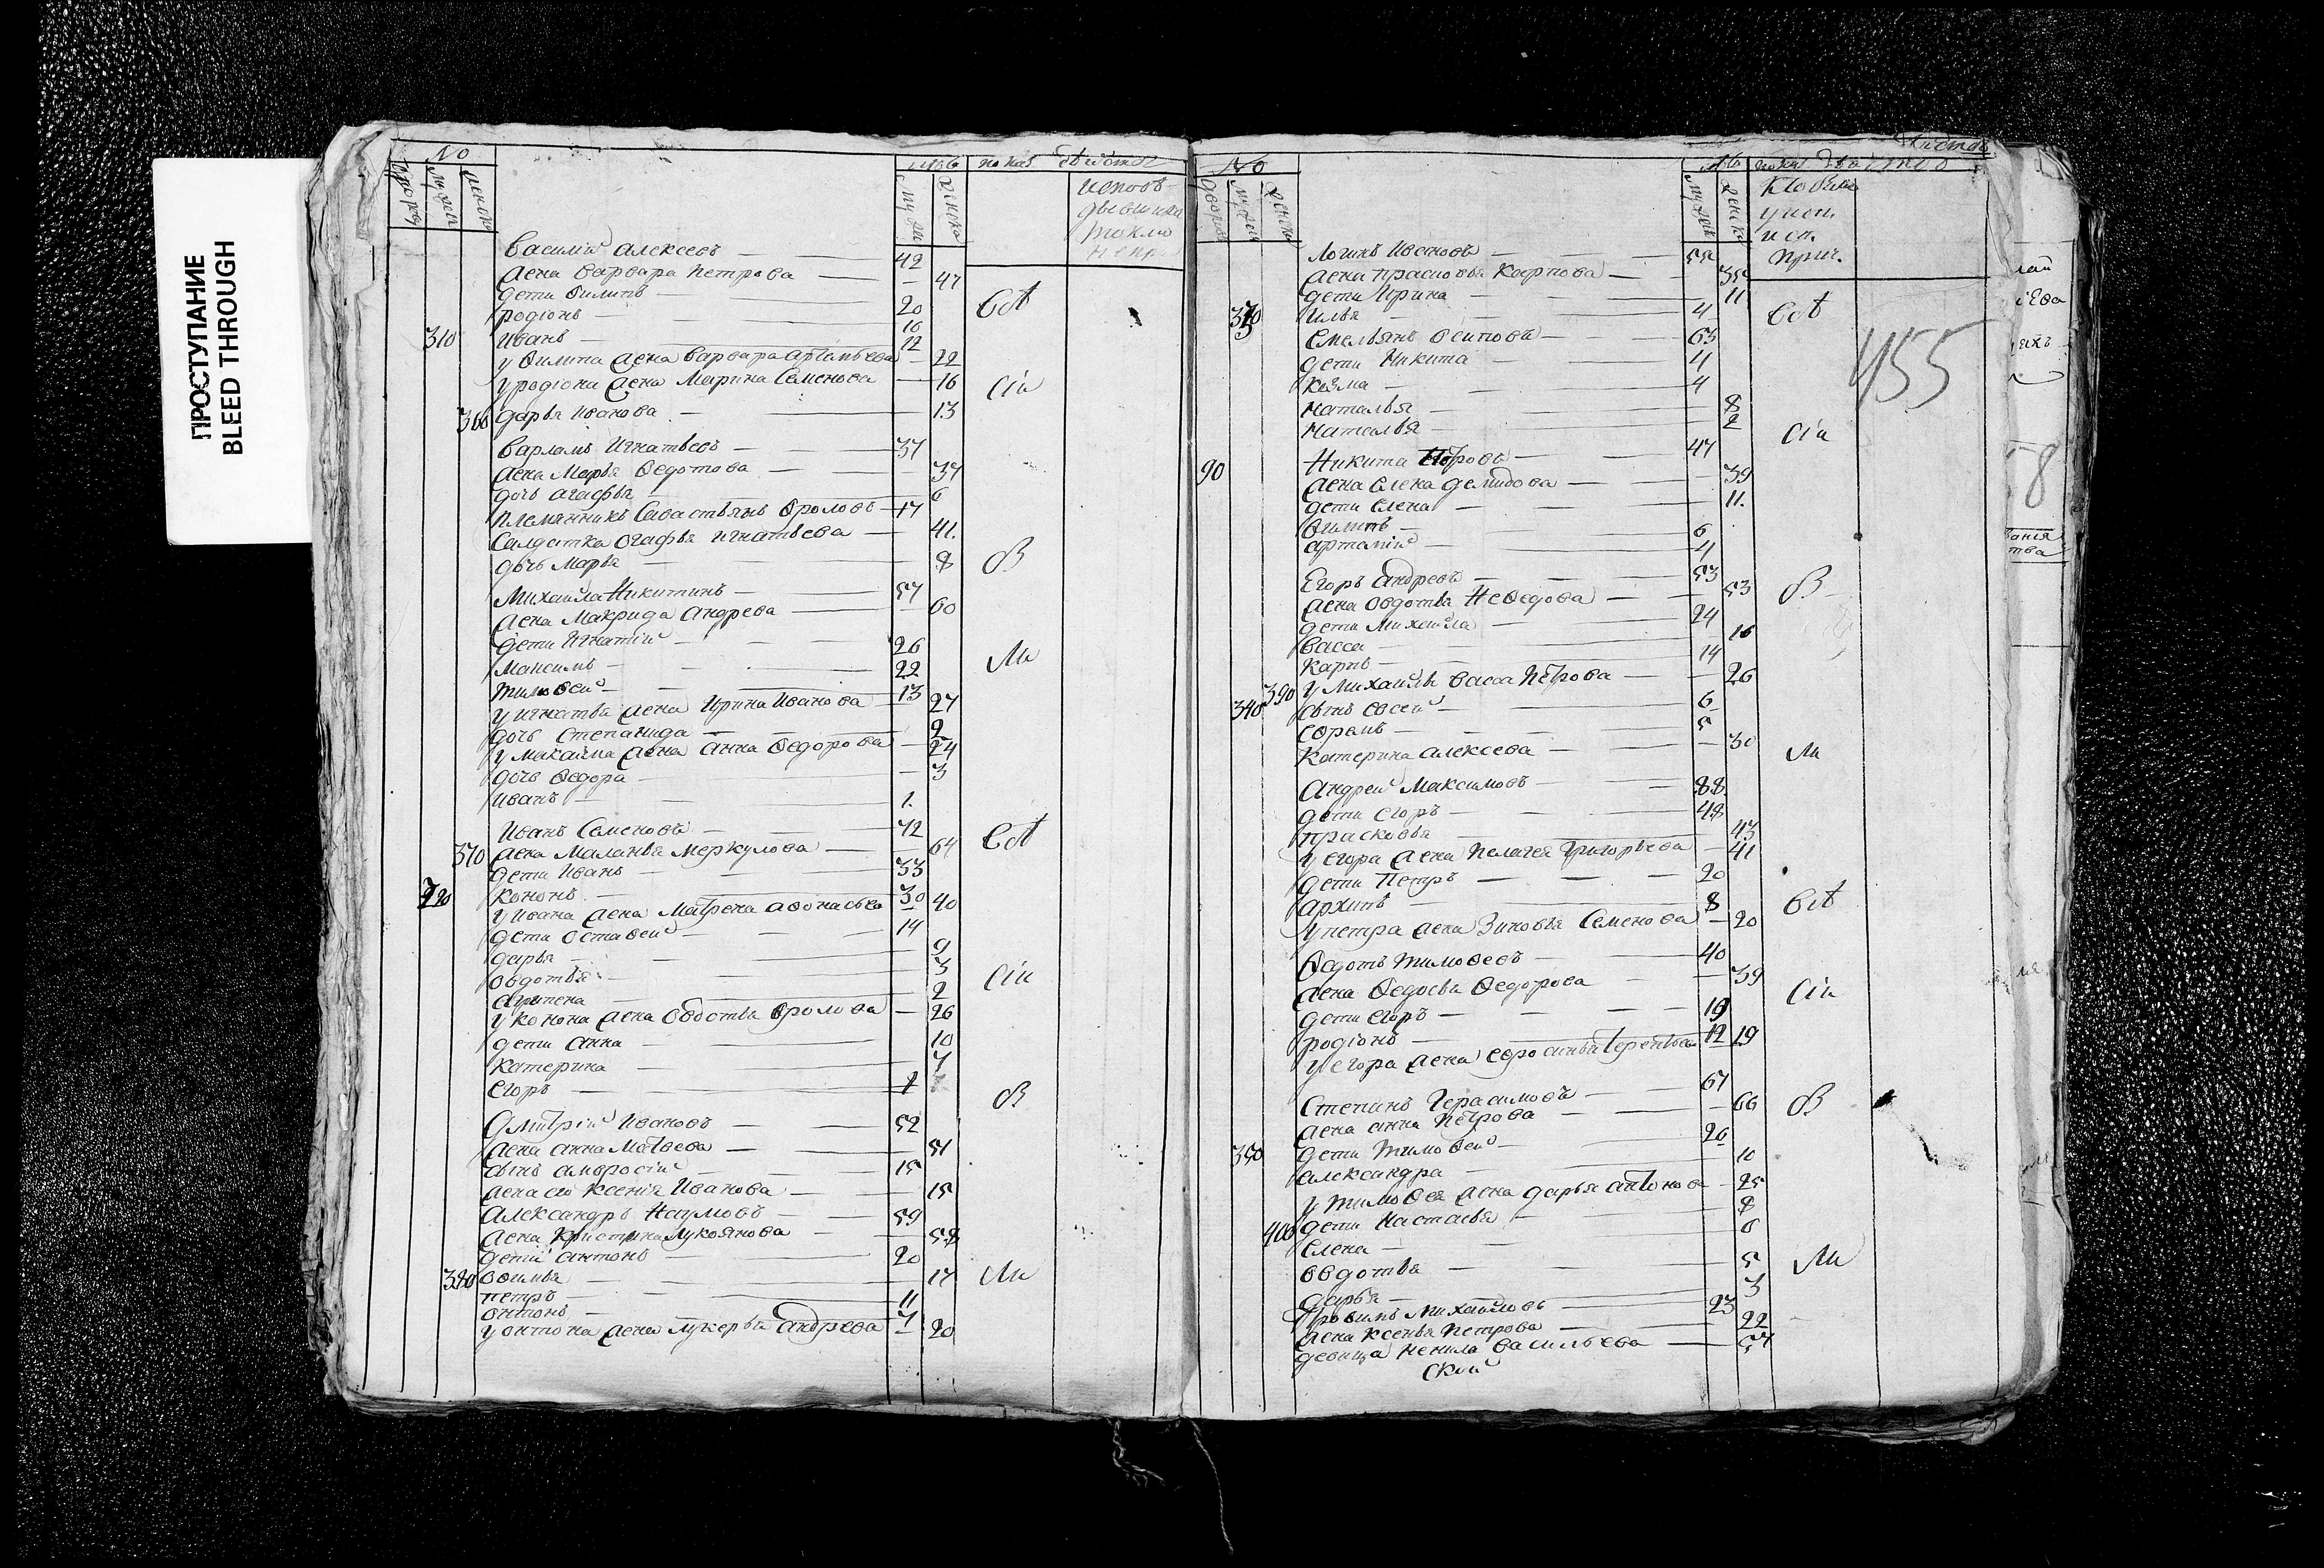 ПРОСТУПАНИЕ
BLEED THROUGH
No
мужска
женска
показ
Василий Алексеевъ — 42
жена Варвара Петрова — 47
дети Филипъ — 20
родионъ — 16
310 Иванъ — 12
у Филипа жена Варвара Артемьева — 22
у родиона жена Марина Семенова — 16
360 Дарья Иванова — 13
Варламъ Игнатьевъ — 37
жена Марья Федотова — 37
дочь Агафья — 6
Племянникъ Савастьянъ Фроловъ — 17
Салдатка Огафья Игнатьева — 41.
дочь Марья — 8
Михаила Никитинъ — 57
жена Макрида Андрева — 60
дети Игнатий — 26
Максимъ — 22
Тимофей — 13
у Игнатья жена Ирина Иванова — 27
дочь Степанида — 2
у Максима жена Анна Федорова — 24
дочь Федора — 3
Иванъ — 1.
Иванъ Семеновъ — 72
370 жена Маланья Меркулова — 64
дети Иванъ — 33
Кононъ — 30
у Ивана жена Матрена Афонасьева — 40
дети Остафей — 14
Дарья — 9
Овдотья — 3
Агрипена — 2
у Конона жена Овдотья Фролова — 26
дети Анна — 10
Катерина — 7
Егоръ — 1
Дмитрий Ивановъ — 52
жена Анна Матвева — 51
сынъ Амбросий — 15
жена ево Ксения Иванова — 15
Александръ Наумовъ — 59
жена Кристина Лукоянова — 58
дети Антонъ — 20
380 Офимья — 17
петръ — 11
онтонъ — 7
у онтона жена Лукерья Андрева — 20
No
Логинъ Ивановъ — 55
жена Прасковья Карпова — 35
дети Ирина — 11
Илья — 4
Емельянъ Осиповъ — 63
дети Никита — 4
Кузма — 4
Наталья — 8
Наталья — 2
90 Никита Петровъ — 47
жена Елена Демидова — 39
дети Елена — 11.
Филипъ — 6
Артамий — 4
Егоръ Андревъ — 53
жена Овдотья Нефедова — 53
дети Михаила — 24
Васса — 16
Карпъ — 14
390 у Михайлы Васса Петрова — 26
340 сынъ Евсей — 6
Ефремъ — 5
Катерина Алексева — 30
Андрей Максимовъ — 88
дети Егоръ — 48
Прасковья — 43
у Егора жена Пелагея Григорьева — 41
дети Петръ — 20
Архипъ — 8
у петра жена Зиновья Семенова — 20
Федотъ Тимофеевъ — 40
жена Федосья Федорова — 39
дети Егоръ — 19
родионъ — 12
у Егора жена Ефросинья Терентьева 19
Степанъ Герасимовъ — 67
жена Анна Петрова — 66
350 дети Тимофей — 26
Александра — 10
у Тимофея жена Дарья Антонова — 25
400 дети Настасья — 8
Елена — 6
Овдотья — 5
Дарья — 3
Трофимъ Михайловъ — 23
жена Ксенья Петрова — 22
девица Ненила Васильева — 57
ской
455